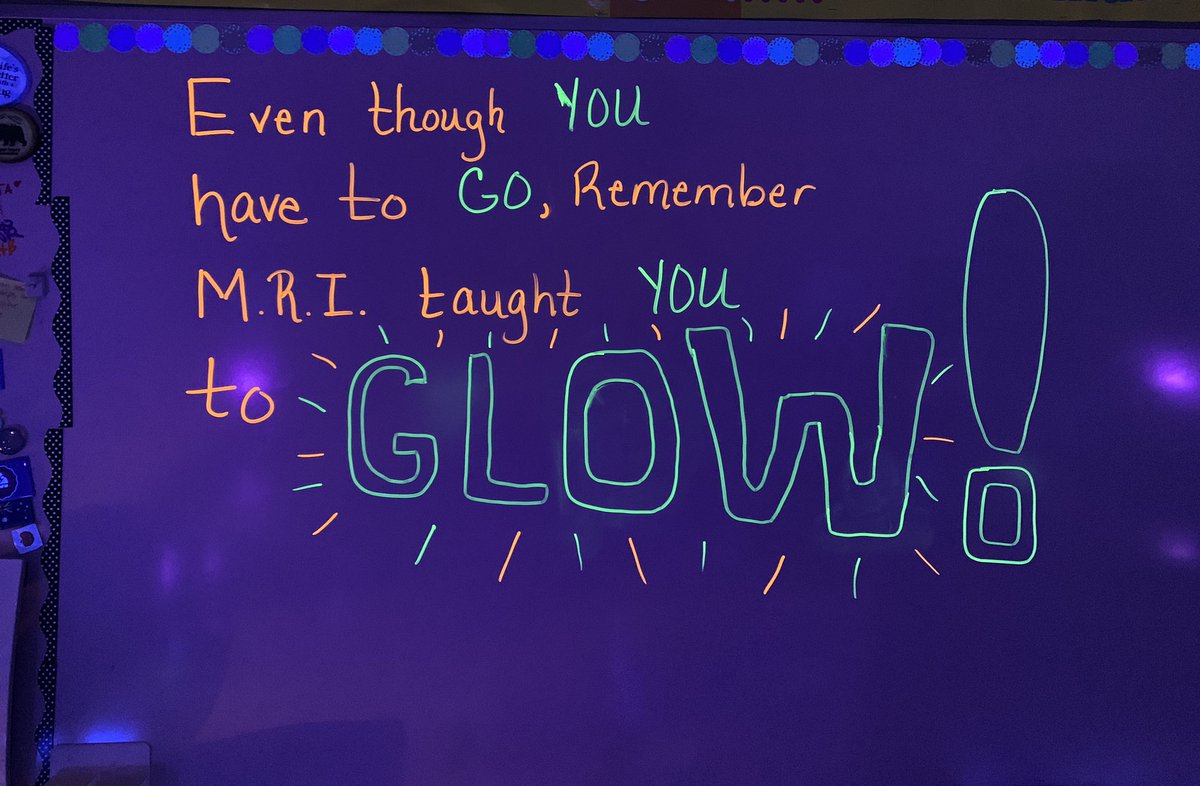 Even though YOU
have to GO, Remember
M.R.I. taught YOU
to GLOW!